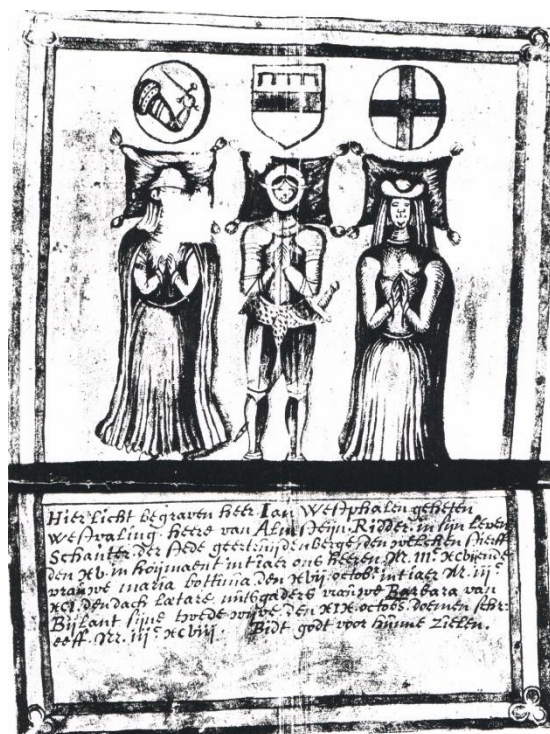 Hier licht begraven heer Ian Westphalen geheten
Westvaling heere van Almsteijn Ridder in sijn leven
Schouter der stede geertruijdenberge den welchen sterff
den XV in hoijmaent int iaer ons heeren
vrauwe maria bottinia den XVij octob. int iaer
XCI. den dach lætare mitsgaders vrauwe Barbara van
Bijlant sijne twede wijve den XIX octobs. doemen schr.
eeff. XCViij. Bidt godt voor hunne zielen.